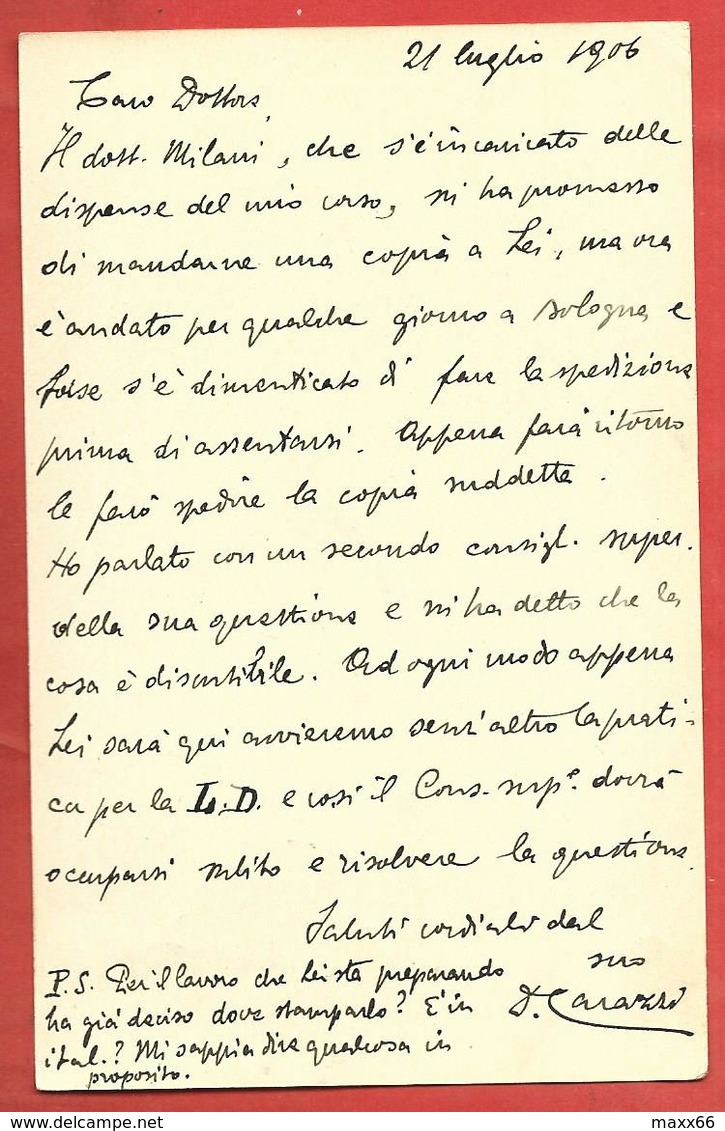 21 luglio 1906
Caro Dottore,
Il dott. Milani, che s'è incaricato delle
dispense del mio corso, mi ha promesso
di mandarne una copia a Lei, ma ora
è andato per qualche giorno a Bologna e
forse s'è dimenticato di fare la spedizione
prima di assentarsi. Appena farà ritorno
le farò spedire la copia suddetta.
Ho parlato con un secondo consigl. super.
della sua questione e mi ha detto che la
cosa è discutibile. Ad ogni modo appena
Lei sarà qui avvieremo senz'altro la prati-
ca per la L.D. e così il Cons. supe. dovrà
occuparsi subito e risolvere la questione.
Saluti cordiali dal
suo
D. Carazzi
P.S. Per il lavoro che Lei sta preparando
ha già deciso dove stamparlo? È in
ital.? Mi sappia dire qualcosa in
proposito.
maxx66